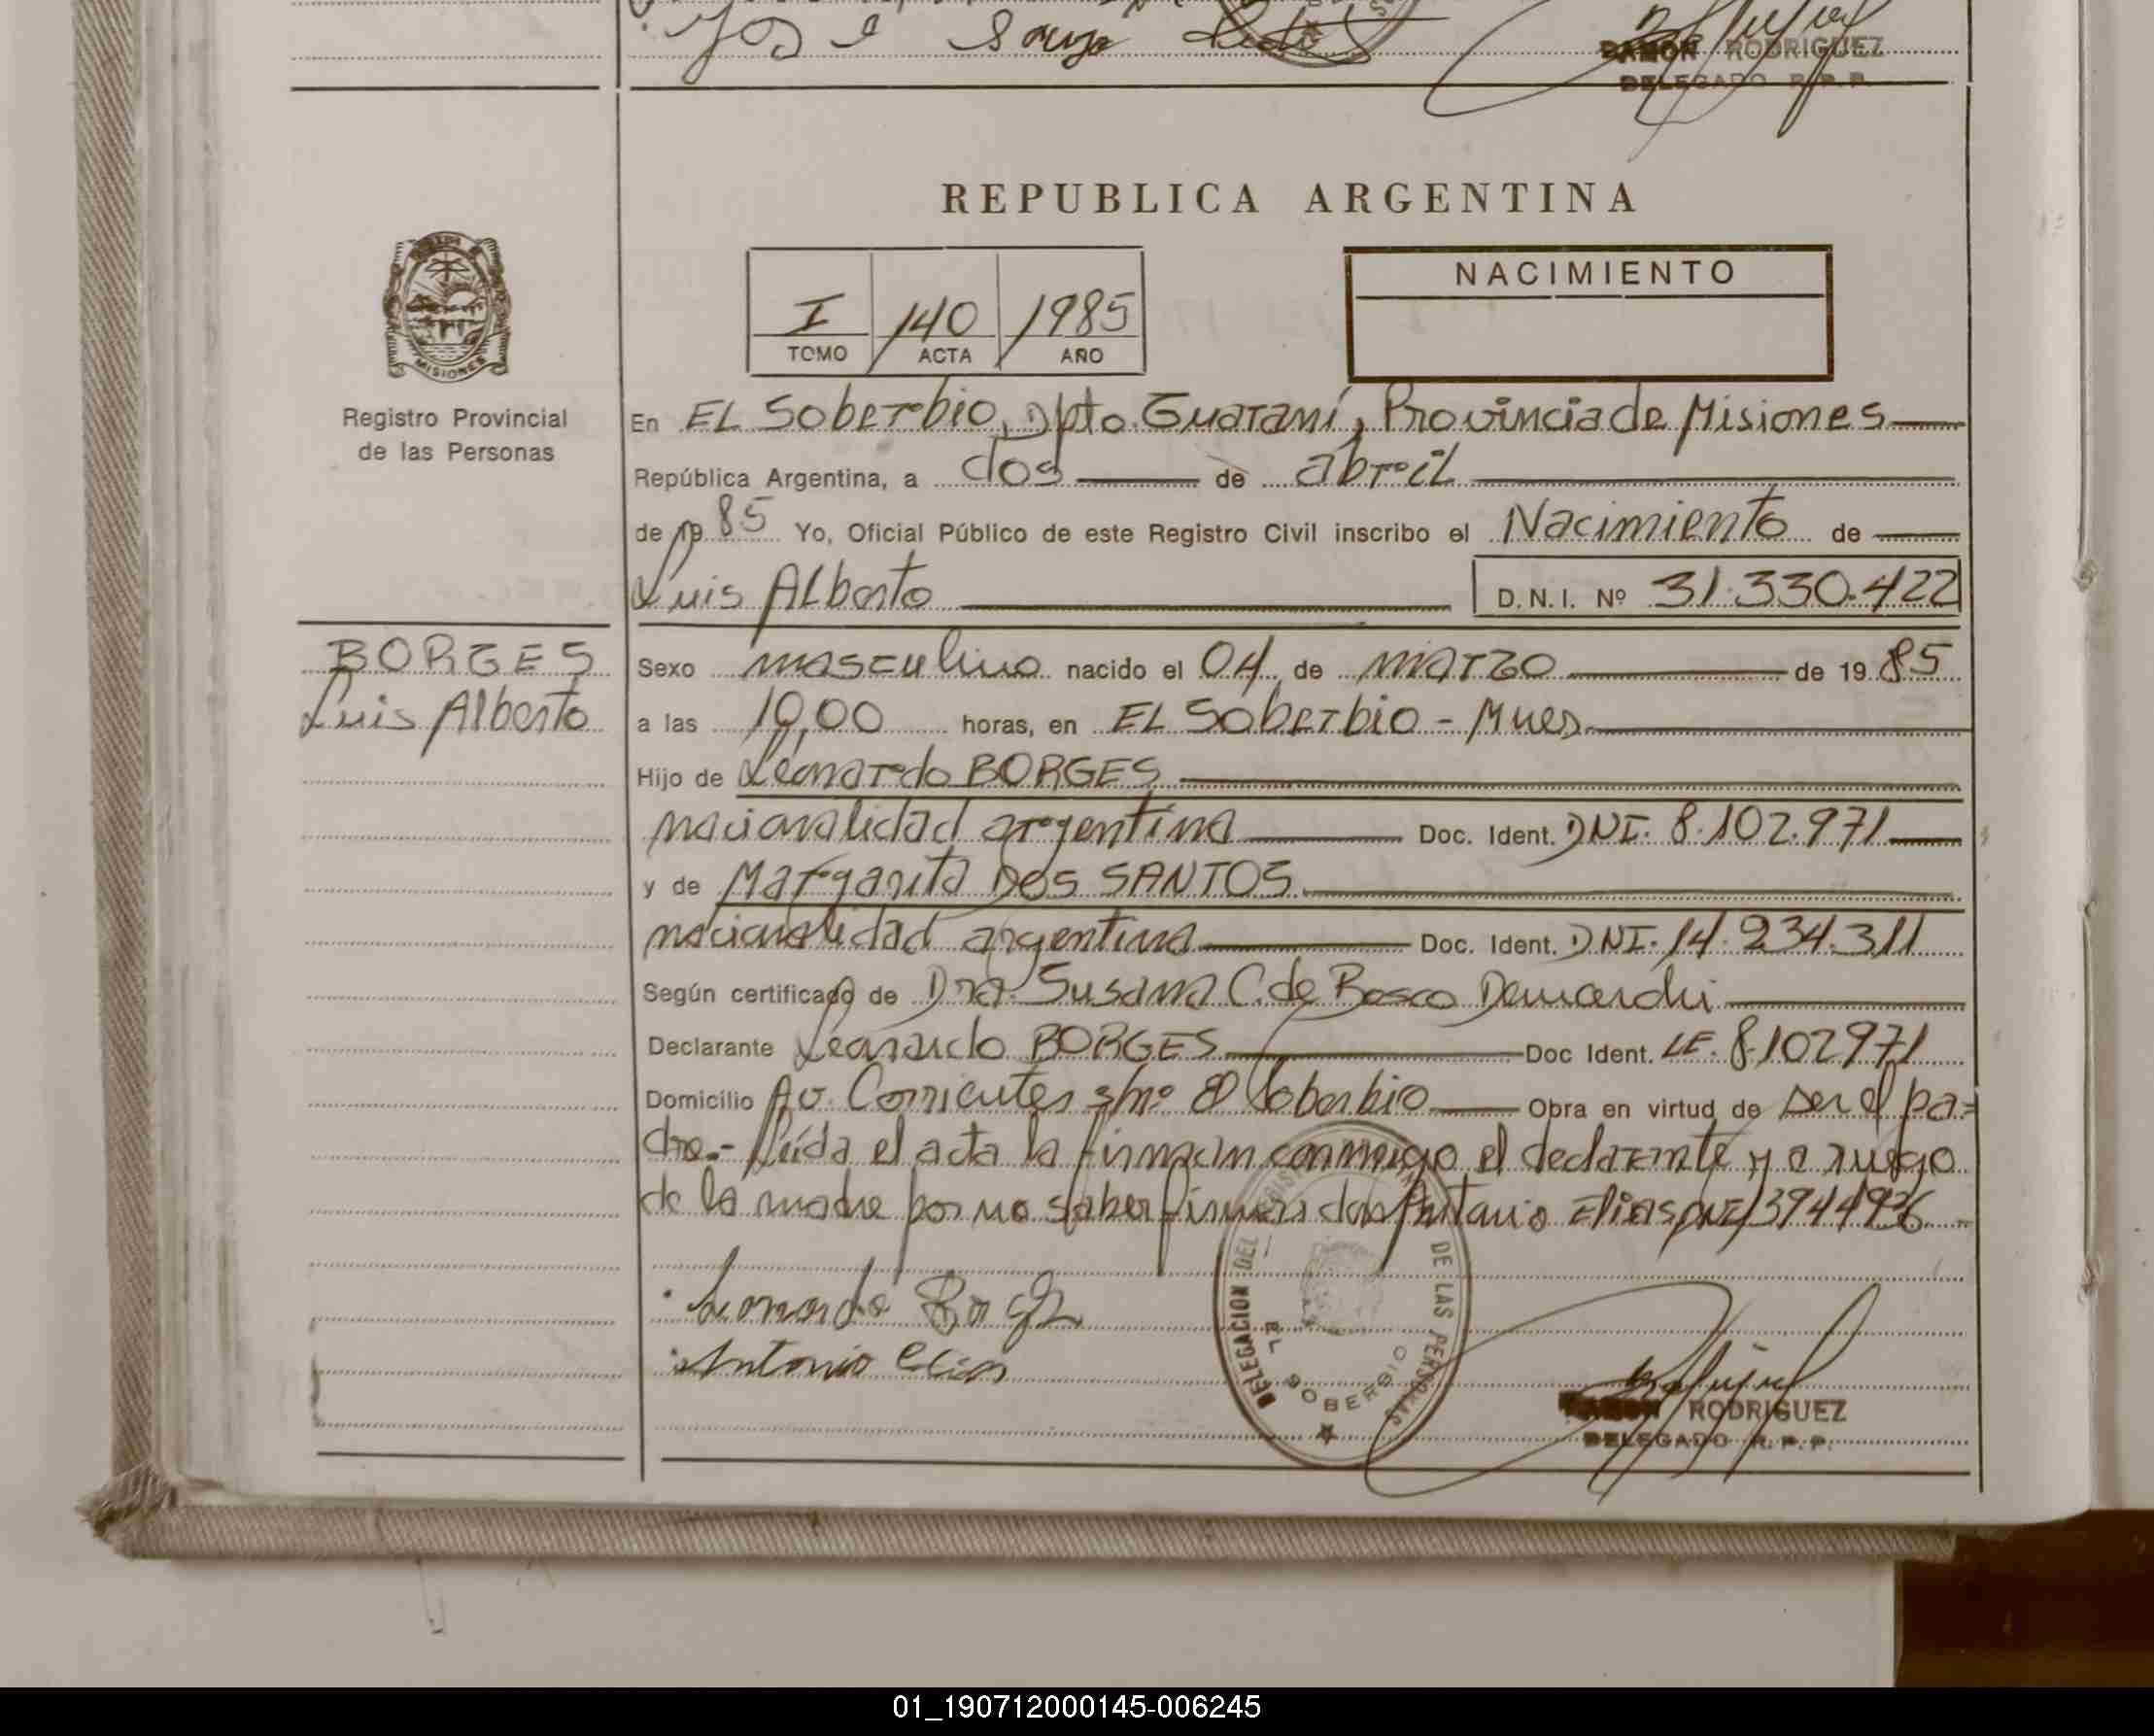 José
RAMON RODRIGUEZ
DELEGADO R.P.P.
REPUBLICA ARGENTINA
MISIONES
Registro Provincial
de las Personas
I 140 1985
TOMO ACTA AÑO
NACIMIENTO
En EL Soberbio, Dpto. Guaraní, Provincia de Misiones
República Argentina, a dos de abril
de 1985 Yo, Oficial Público de este Registro Civil inscribo el Nacimiento de
Luis Alberto D.N.I. Nº 31.330.422
BORGES
Luis Alberto
Sexo masculino nacido el 04 de marzo de 1985
a las 10,00 horas, en EL Soberbio - Mnes.
Hijo de Leonardo BORGES
nacionalidad argentina Doc. Ident. DNI. 8.102.971
y de Margarita DOS SANTOS
nacionalidad argentina Doc. Ident. DNI. 14.234.311
Según certificado de Dra. Susana C. de Bosco Demarchi
Declarante Leonardo BORGES Doc Ident. LE. 8.102971
Domicilio Av. Corrientes s/nº El Soberbio Obra en virtud de ser el pa=
dre.- Leída el acta la firman conmigo el declarante y a ruego
de la madre por no saber firmar don Antonio Elias DNI 3944936
Leonardo
Antonio Elias
DELEGACION DEL DE LAS PERSONAS
EL SOBERBIO
RAMON RODRIGUEZ
DELEGADO R.P.P.
01_190712000145-006245